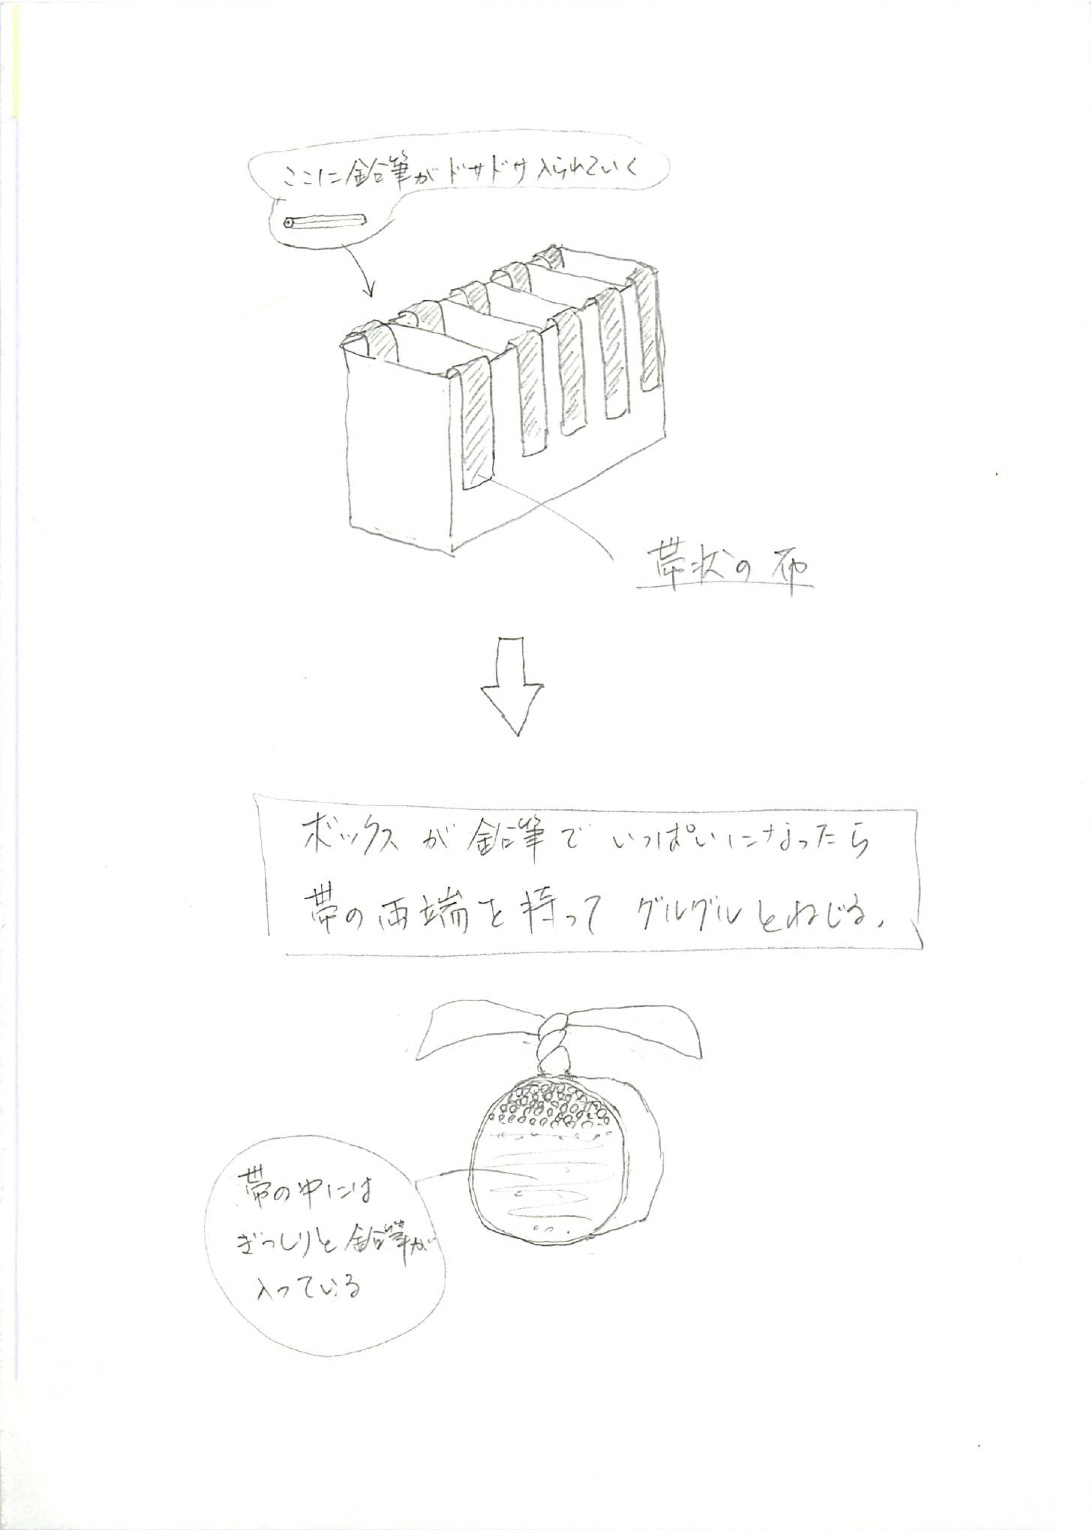 ここに鉛筆がドサドサ入られていく
帯状の布
ボックスが鉛筆でいっぱいになったら
帯の両端を持ってグルグルとねじる。
帯の中には
ぎっしりと鉛筆が
入っている